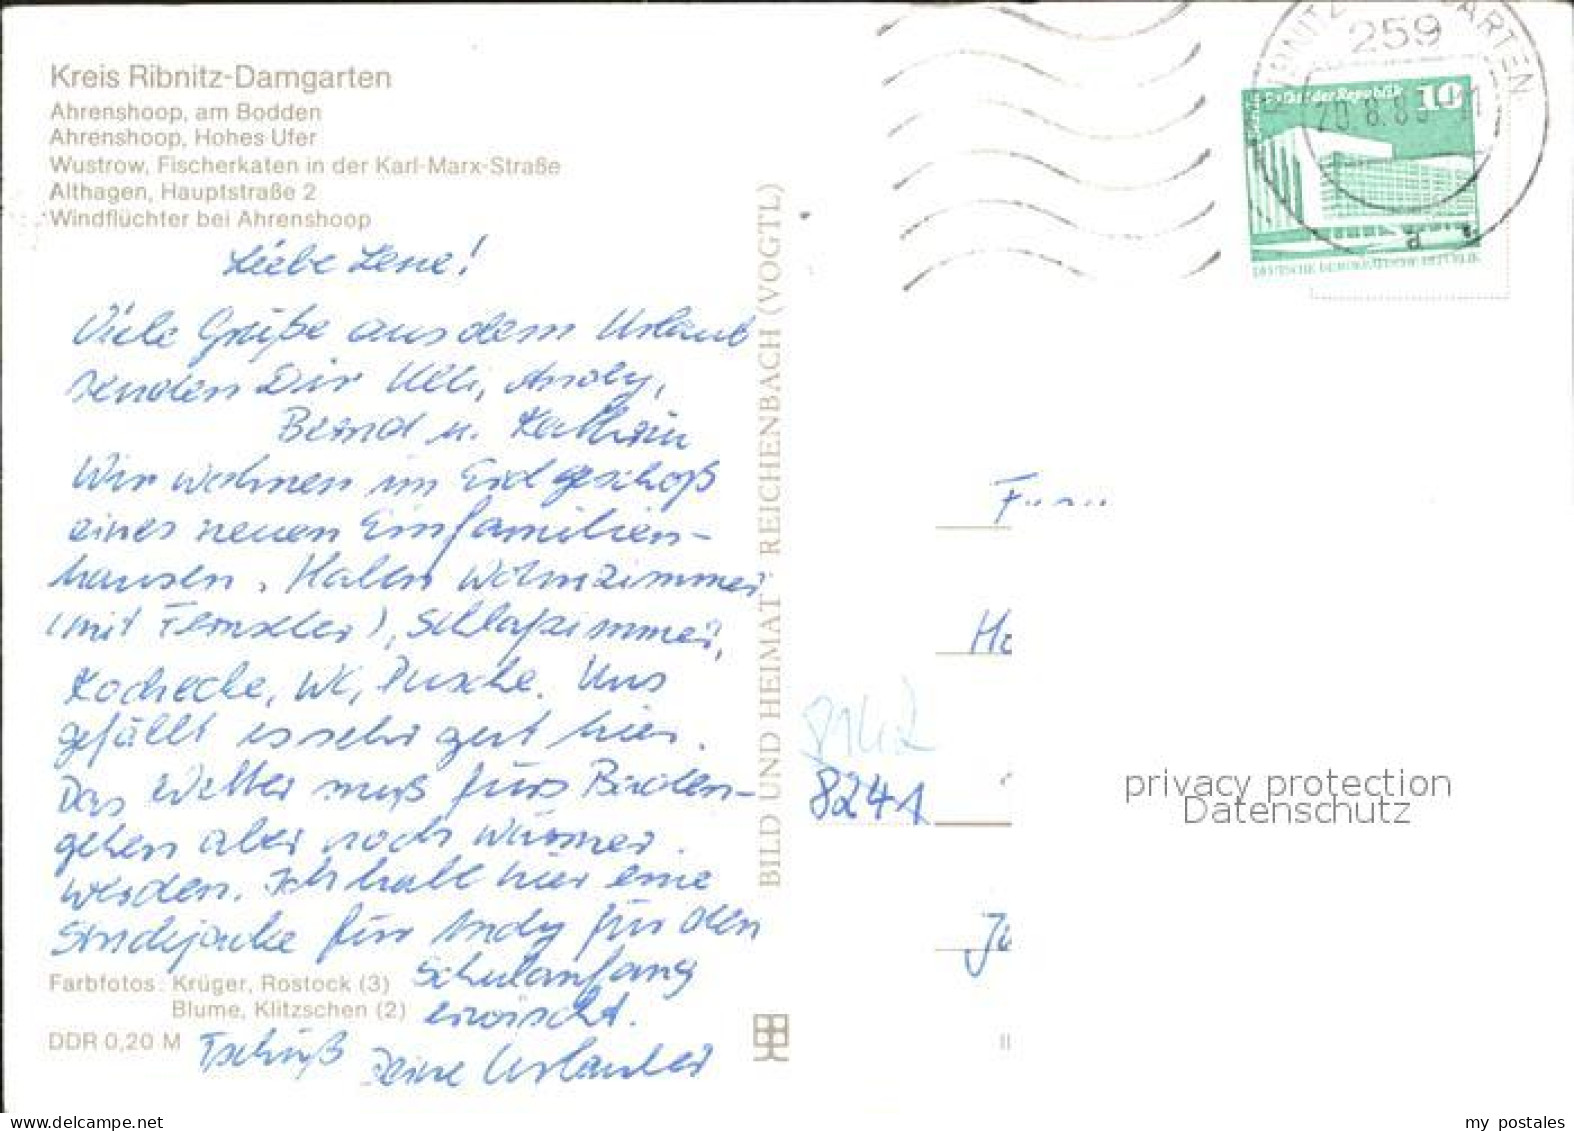 Kreis Ribnitz-Damgarten
Ahrenshoop, am Bodden
Ahrenshoop, Hohes Ufer
Wustrow, Fischerkaten in der Karl-Marx-Straße
Althagen, Hauptstraße 2
Windflüchter bei Ahrenshoop
Liebe Lene!
Viele Grüße aus dem Urlaub
senden Dir Ulli, Andy,
Bernd u. Kathrin
Wir wohnen im Erdgeschoß
eines neuen Einfamilien-
hauses. Haben Wohnzimmer
(mit Fernseher), Schlafzimmer,
Kochecke, WC, Dusche. Uns
gefällt es sehr gut hier.
Das Wetter muß fürs Baden-
gehen aber noch wärmer
werden. Ich hab hier eine
Strickjacke für Andy für den
Schulanfang
erwischt.
Tschüß Deine Urlauber
Farbfotos: Krüger, Rostock (3)
Blume, Klitzschen (2)
DDR 0,20 M
BILD UND HEIMAT · REICHENBACH (VOGTL)
259
Palast der Republik 10
DEUTSCHE DEMOKRATISCHE REPUBLIK
Frau
Ho
8142
8241
privacy protection
Datenschutz
my postales